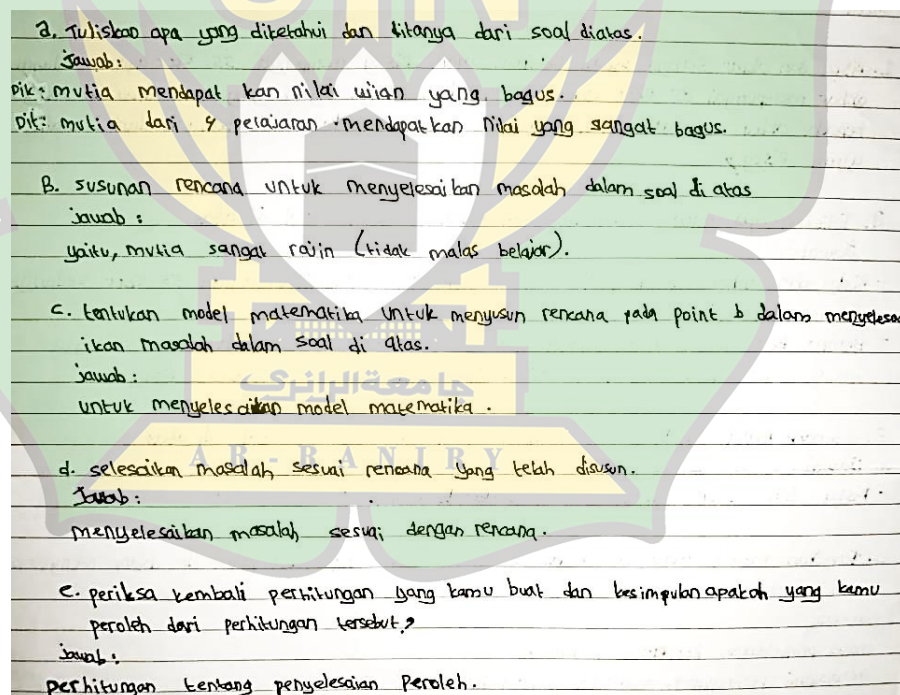 a. Tuliskan apa yang diketahui dan ditanya dari soal diatas.
Jawab:
Dik: mutia mendapat kan nilai ujian yang bagus.
Dit: mutia dari 4 pelajaran mendapatkan nilai yang sangat bagus.
B. susunan rencana untuk menyelesaikan masalah dalam soal di atas
jawab:
yaitu, mutia sangat rajin (tidak malas belajar).
c. tentukan model matematika untuk menyusun rencana pada point b dalam menyelesa
ikan masalah dalam soal di atas.
jawab:
جامعة الرانري
untuk menyelesaikan model matematika.
AR-RANIRY
d. selesaikan masalah sesuai rencana yang telah disusun.
Jawab:
menyelesaikan masalah sesuai dengan rencana.
e. periksa kembali perhitungan yang kamu buat dan kesimpulan apakah yang kamu
peroleh dari perhitungan tersebut?
jawab:
perhitungan tentang penyelesaian peroleh.